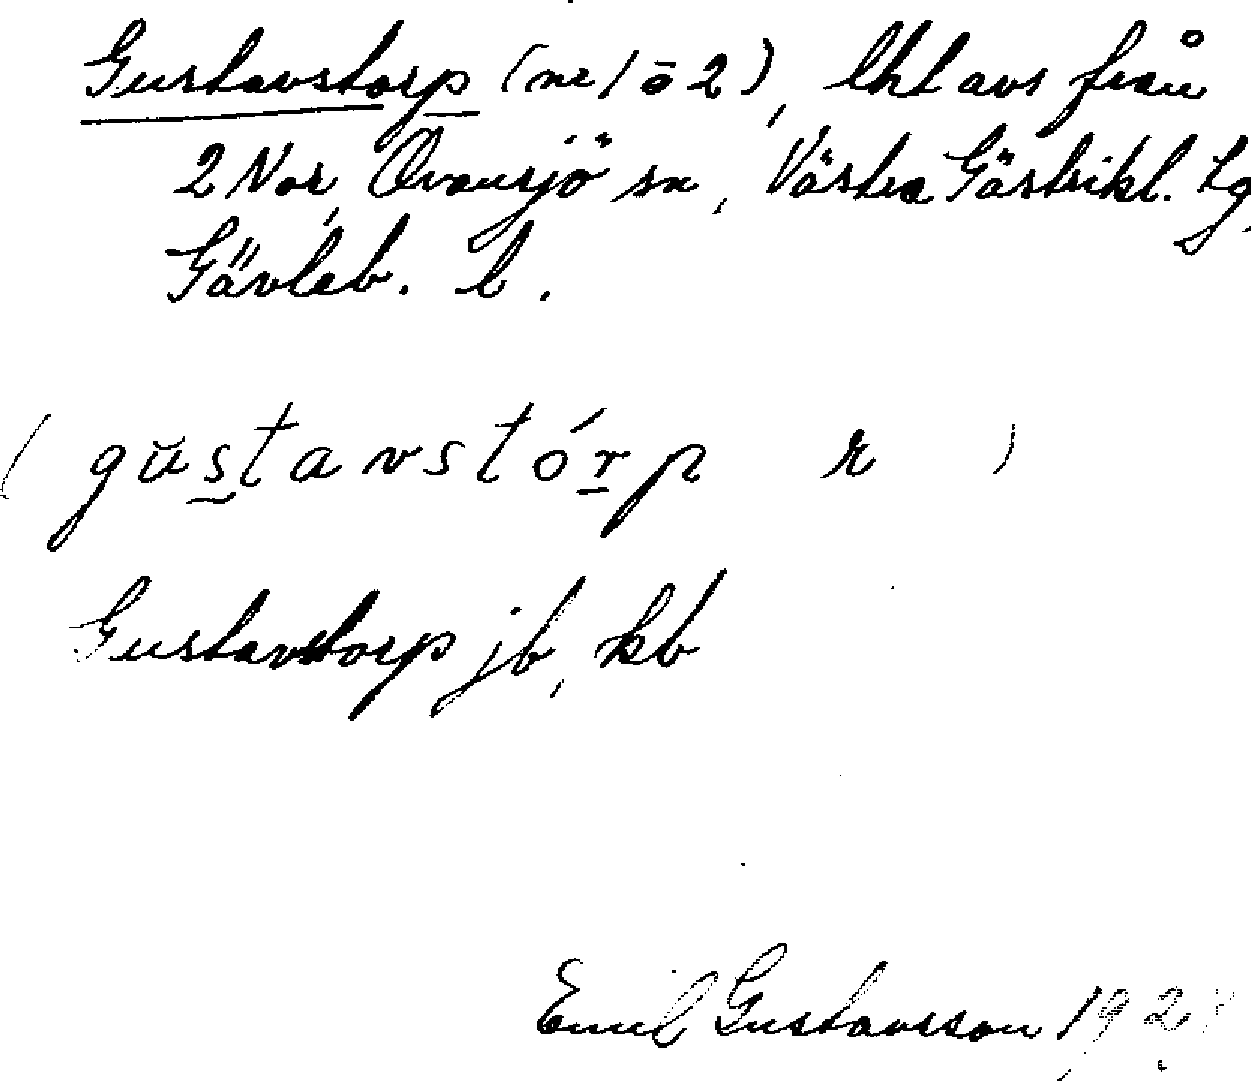 Gustavstorp (nr 1 ō 2), lht avs från
2 Nor, Ovansjö sn, Västra Gästrikl. tg,
Gävleb. l.
( gŭstavstórp r )
Gustavstorp jb, kb
Emil Gustavsson